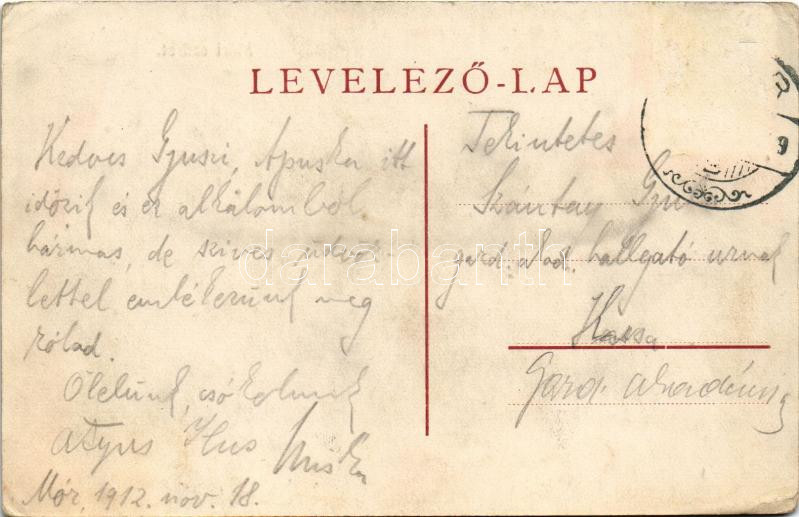 LEVELEZŐ-LAP
Kedves Gyuszi, Apuska itt
időzik és ez alkalomból
hármas, de szives üdvöz-
lettel emlékezünk meg
rólad.
Ölelünk, csókolunk
Atyus Ilus Miska
Mór, 1912. nov. 18.
Tekintetes
Szántay
gazd. akad. hallgató urnak
Kassa
Gazd. akadémia
9
darabanth